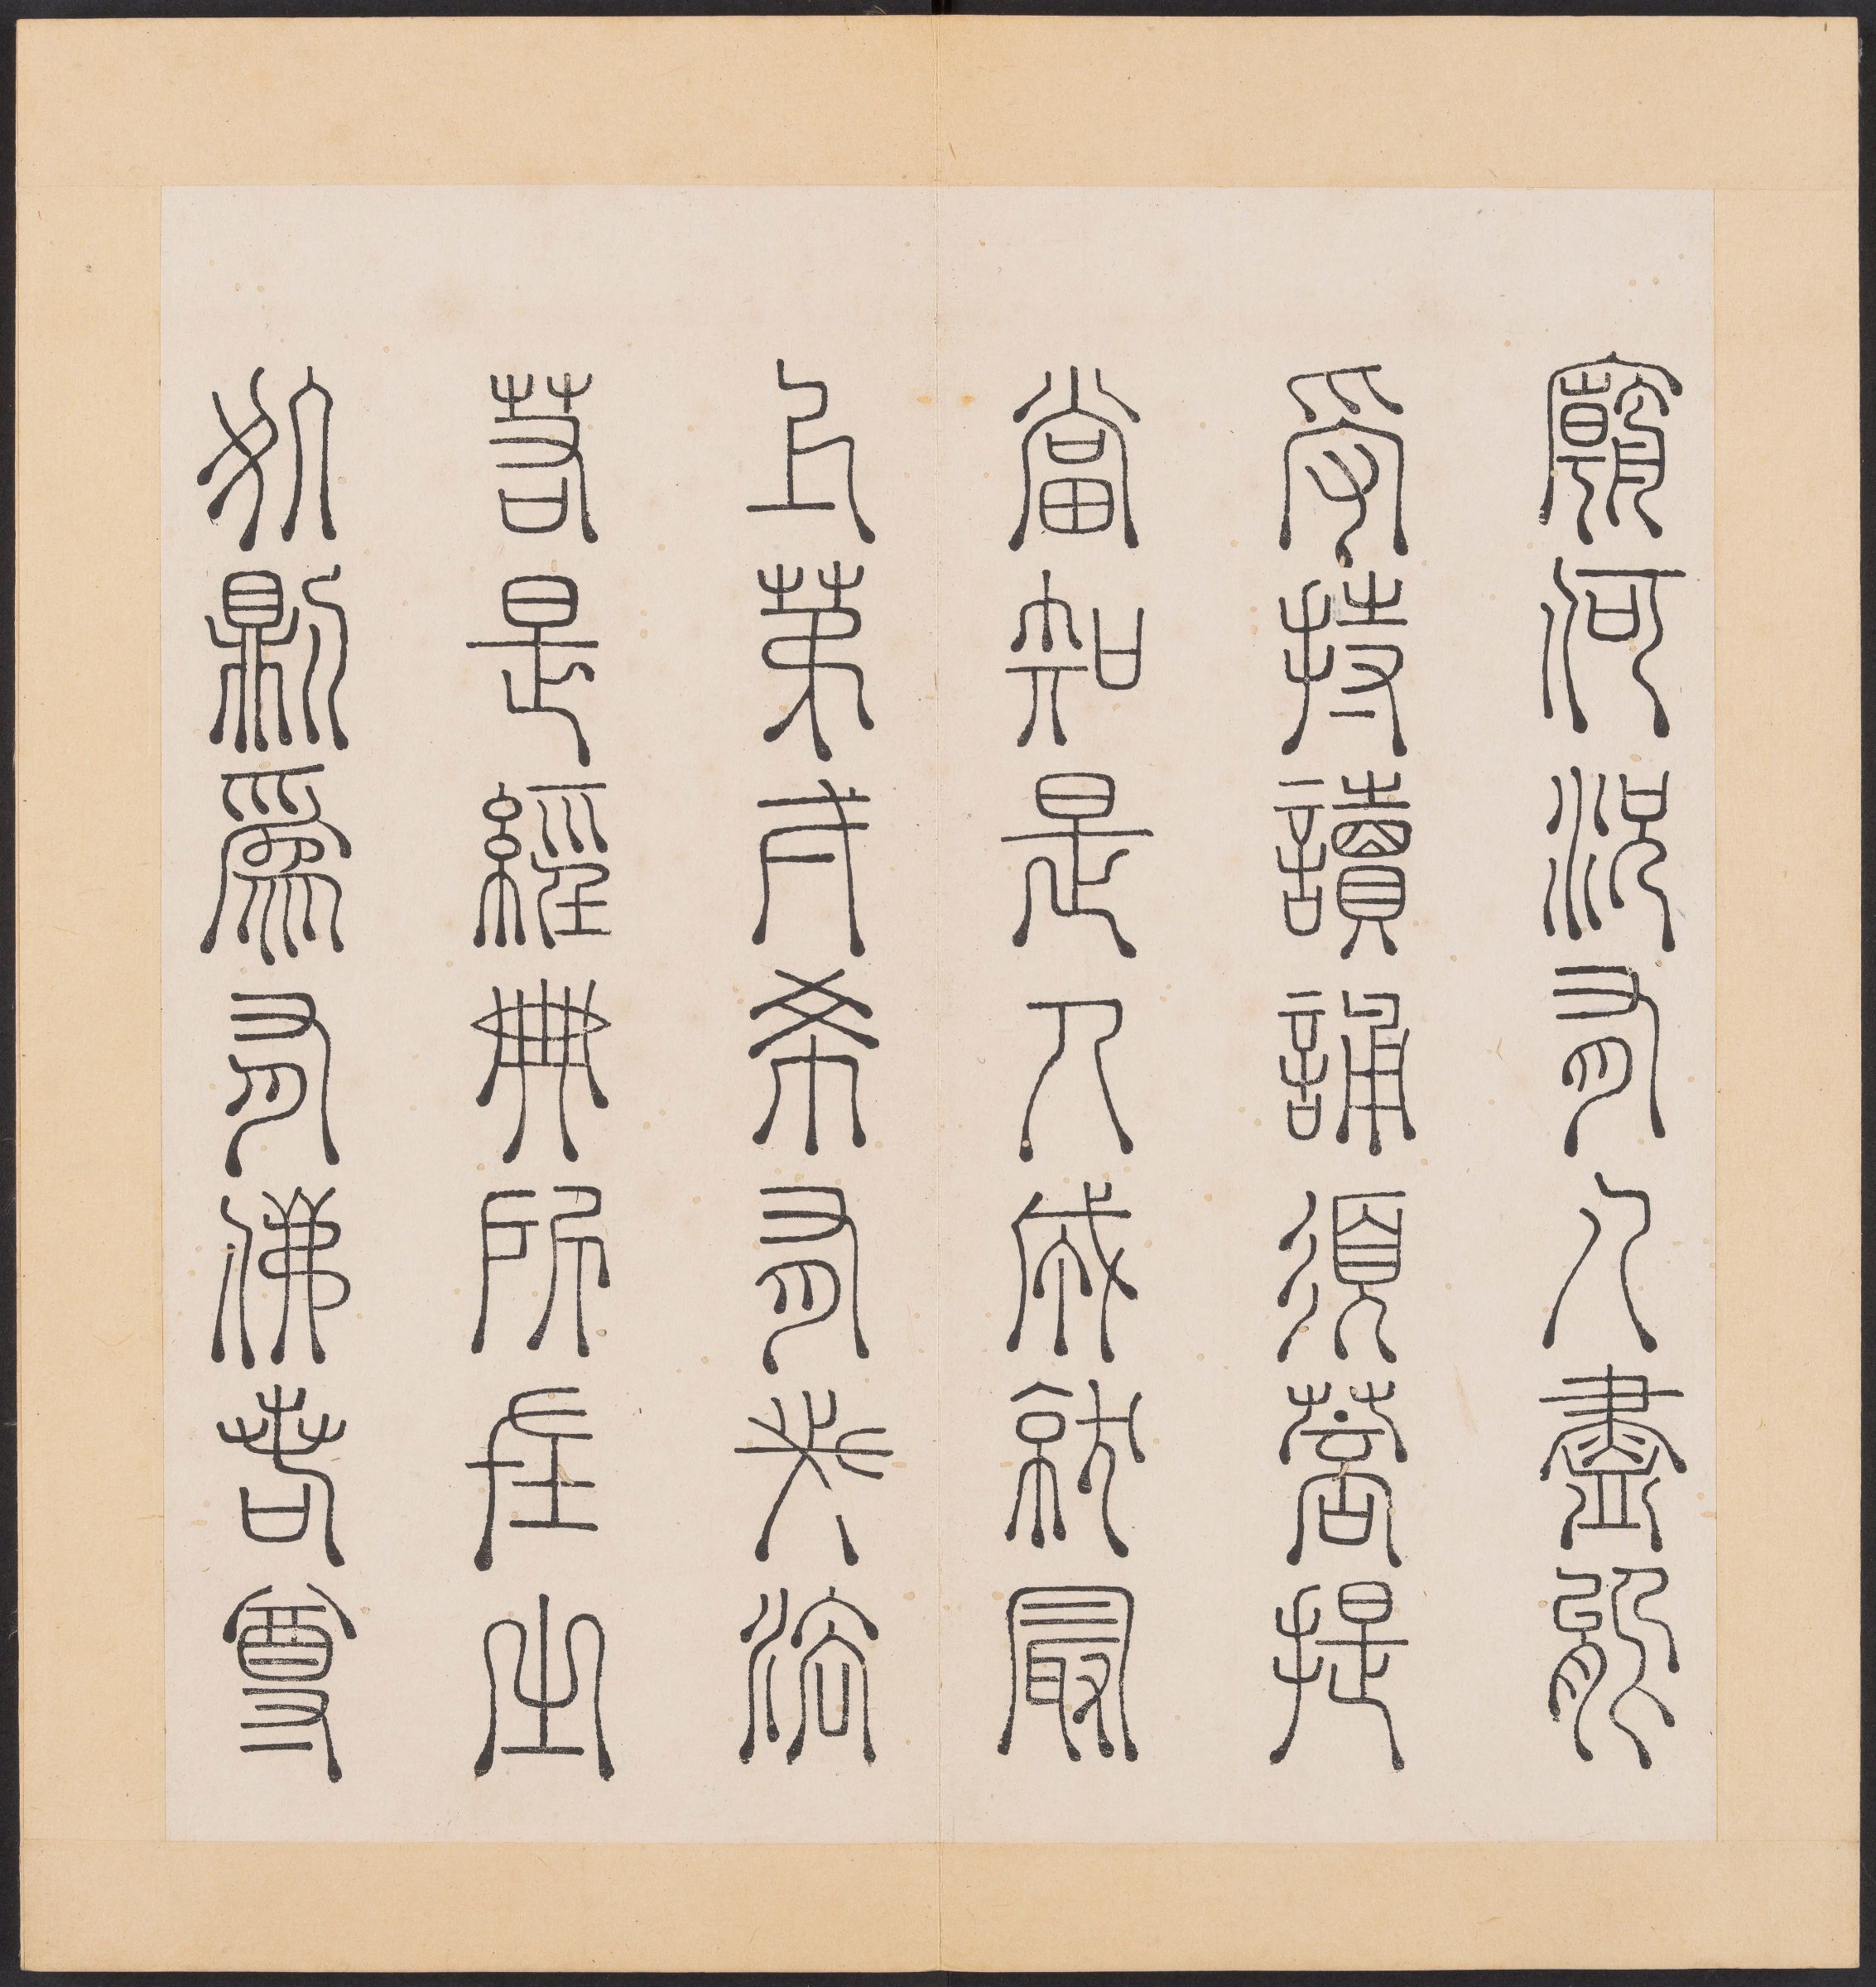 竆何況有人盡能
受持讀誦須菩提
當知是人成就最
上第一希有之法
若是經典所在之
處則為有佛若尊